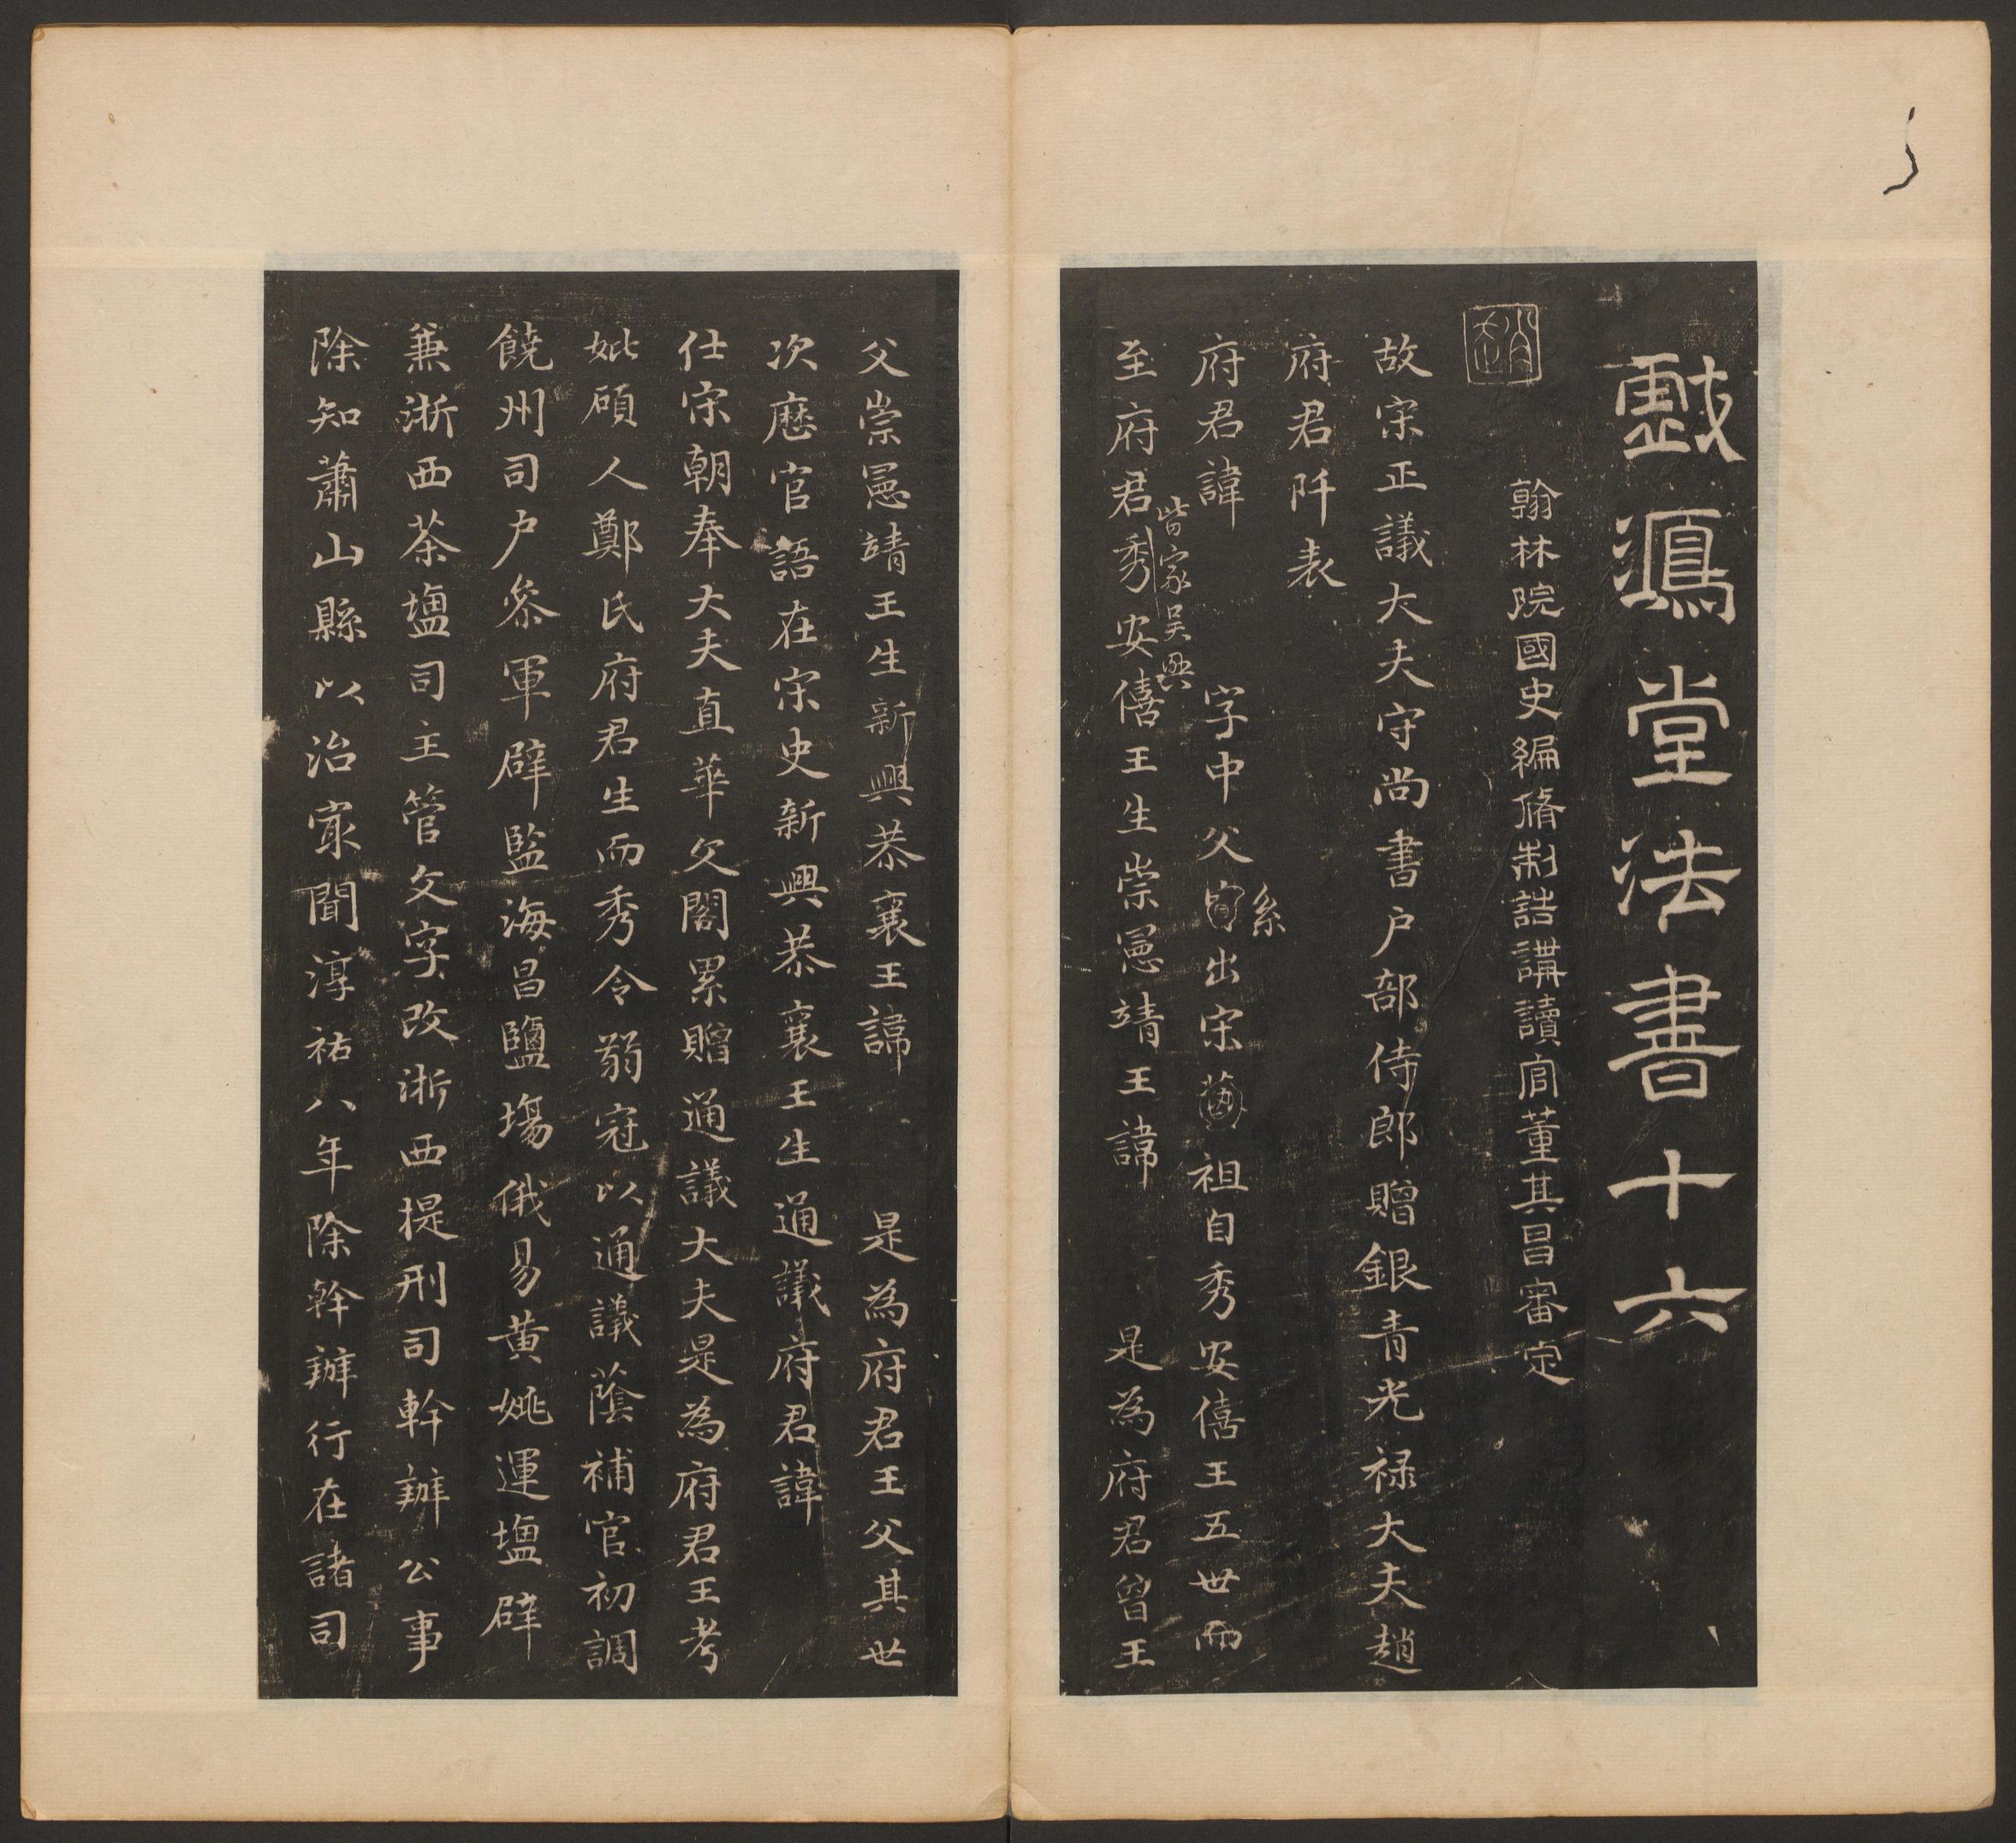 戲鴻堂法書十六
翰林院國史編脩制誥講讀官董其昌審定
趙
故宋正議大夫守尚書戶部侍郎贈銀青光禄大夫趙
府君阡表
府君諱 字中父系出宋祖自秀安僖王五世而
皆家吳興
至府君秀安僖王生崇憲靖王諱 是為府君曾王
父崇憲靖王生新興恭襄王諱 是為府君王父其世
次歷官語在宋史新興恭襄王生通議府君諱
仕宋朝奉大夫直華文閣累贈通議大夫是為府君王考
妣碩人鄭氏府君生而秀令弱冠以通議蔭補官初調
饒州司戶叅軍辟監海昌鹽場俄易黄姚運塩辟
兼浙西茶塩司主管文字改浙西提刑司幹辦公事
除知蕭山縣以治㝡聞淳祐八年除幹辦行在諸司